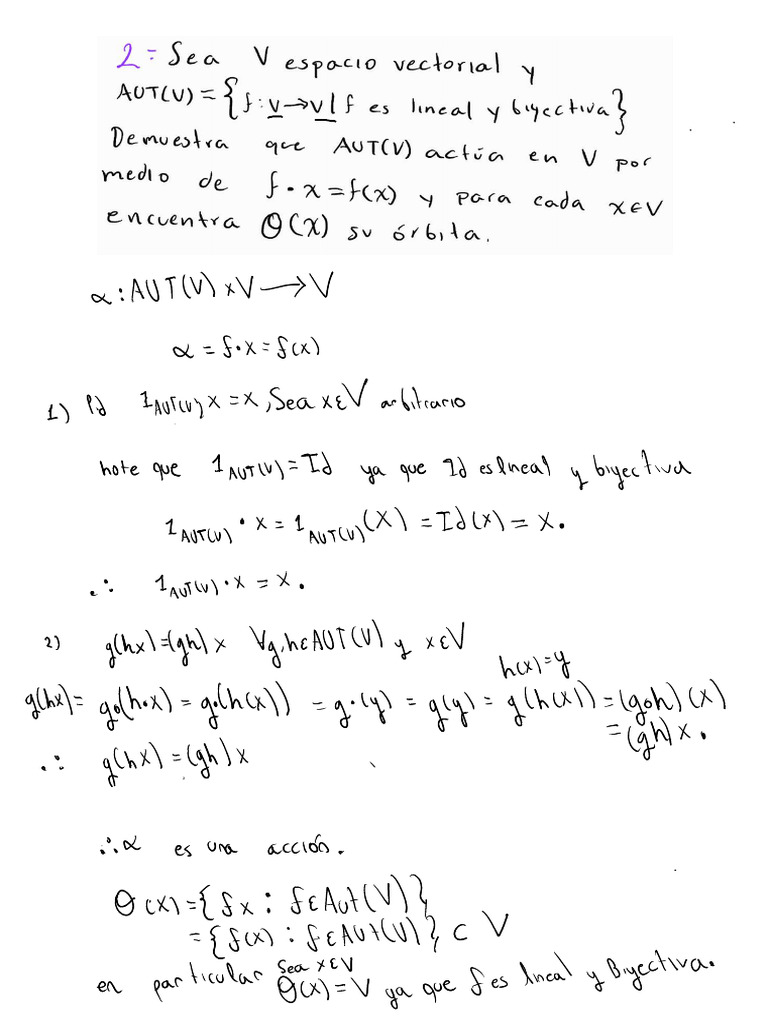 2= Sea V espacio vectorial y
AUT(V) = {f: V→V | f es lineal y biyectiva}
Demuestra que AUT(V) actúa en V por
medio de f·x = f(x) y para cada x∈V
encuentra O(x) su órbita.
α: AUT(V) × V ⟶ V
α = f·x = f(x)
1) Pd 1_AUT(V) x = x, Sea x∈V arbitrario
note que 1_AUT(V) = Id ya que Id es lineal y biyectiva
1_AUT(V) · x = 1_AUT(V) (x) = Id(x) = x.
∴ 1_AUT(V) · x = x.
2) g(hx) = (gh) x ∀g,h∈AUT(V) y x∈V
h(x) = y
g(hx) = g∘(h·x) = g·(h(x)) = g·(y) = g(y) = g(h(x)) = (g∘h)(x)
= (gh)x.
∴ g(hx) = (gh)x
∴ α es una acción.
O(x) = {fx : f∈Aut(V)}
= {f(x) : f∈AUt(V)} ⊂ V
en particular Sea x∈V
O(x) = V ya que f es lineal y Biyectiva.